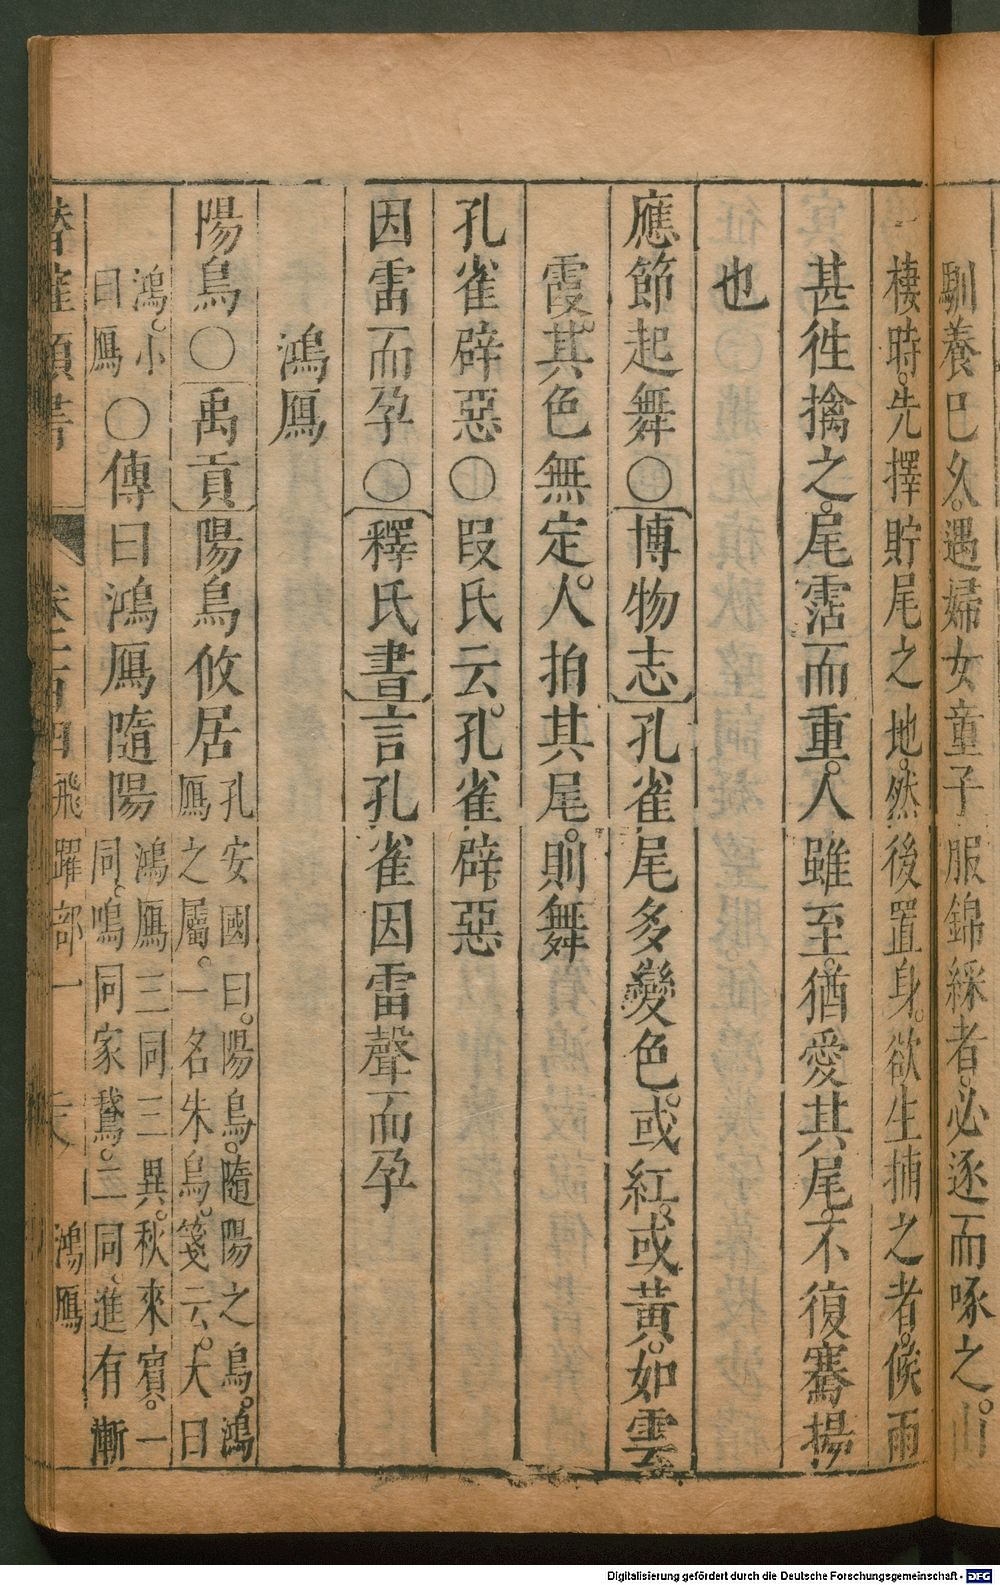 馴養已久。遇婦女童子服錦綵者。必逐而啄之。山
棲時。先擇貯尾之地。然後置身。欲生捕之者。候雨
甚徃擒之。尾霑而重。人雖至。猶愛其尾。不復騫揚
也
應節起舞○博物志孔雀尾多變色。或紅。或黃。如雲
霞。其色無定。人拍其尾。則舞
孔雀辟惡○段氏云。孔雀辟惡
因雷而孕○釋氏書言孔雀因雷聲而孕
鴻鴈
陽鳥○禹貢陽鳥攸居孔安國曰。陽鳥。隨陽之鳥。鴻
鴈之屬。一名朱鳥。箋云。大曰
鴻。小
曰鴈○傳曰鴻鴈隨陽鴻鴈三同三異。秋來賓。一
同。鳴同家鵞。二同、進有漸
飛躍部一 鴻鴈
Digitalisierung gefördert durch die Deutsche Forschungsgemeinschaft - DFG